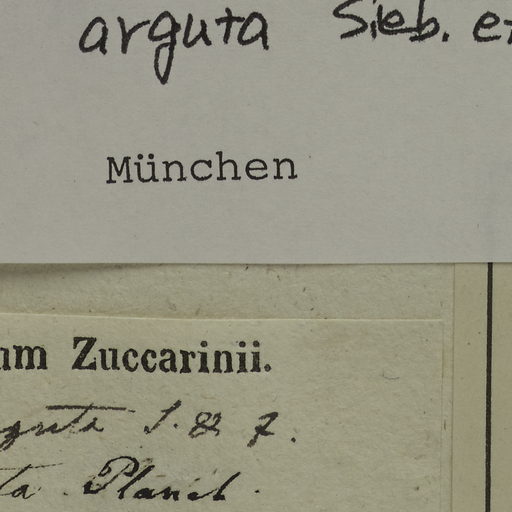 arguta Sieb. et
München
um Zuccarinii.
guta S. & Z.
ta Planch.